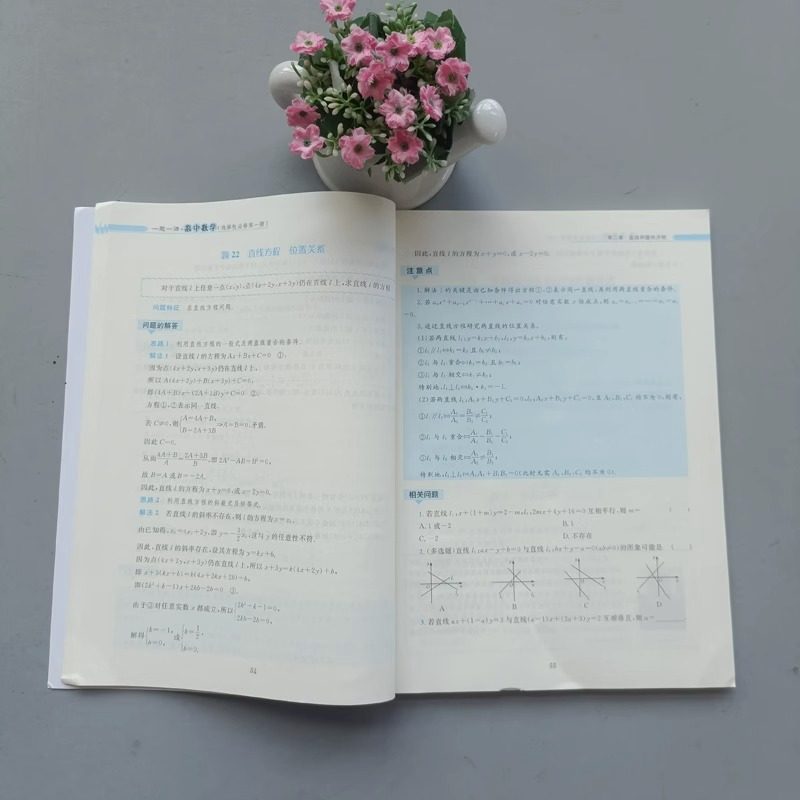 一题一课·高中数学(选择性必修第一册)
题 22 直线方程 位置关系
对于直线 l 上任意一点(x,y),点(4x+2y,x+3y)仍在直线 l 上,求直线 l 的方程
问题特征 求直线方程问题.
问题的解答
思路 1 利用直线方程的一般式及两直线重合的条件.
解法 1 设直线 l 的方程为 Ax+By+C=0 ①.
因为点(4x+2y,x+3y)仍在直线 l 上,
所以 A(4x+2y)+B(x+3y)+C=0,
即(4A+B)x+(2A+3B)y+C=0 ②.
方程①,②表示同一直线.
若 C≠0,则{A=4A+B, B=2A+3B ⇒A=B=0,矛盾.
因此 C=0.
从而(4A+B)/A=(2A+3B)/B,即 2A²-AB-B²=0,
故 B=A 或 B=-2A.
因此,直线 l 的方程为 x+y=0,或 x-2y=0.
思路 2 利用直线方程的斜截式及待定式.
解法 2 若直线 l 的斜率不存在,则 l 的方程为 x=x₀,
由已知得,x₀=4x₀+2y,即 y=-3/2x₀,这与 y 的任意性不符.
因此,直线 l 的斜率存在,设其方程为 y=kx+b,
因为点(4x+2y,x+3y)仍在直线 l 上,所以 x+3y=k(4x+2y)+b,
即 x+3(kx+b)=k(4x+2kx+2b)+b,
即(2k²+k-1)x+2kb-2b=0 ③.
由于③对任意实数 x 都成立,所以{2k²+k-1=0, 2kb-2b=0,
解得{k=-1, b=0, 或{k=1/2, b=0.
54
第二章 直线和圆的方程
因此,直线 l 的方程为 x+y=0,或 x-2y=0.
注意点
1. 解法 1 的关键是由已知条件得出方程①,②表示同一直线,再利用两直线重合的条件.
=0.
3. 通过直线方程研究两直线的位置关系.
(1)若两直线 l₁:y=k₁x+b₁,l₂:y=k₂x+b₂,则有,
①l₁∥l₂⇔k₁=k₂ 且 b₁≠b₂;
②l₁ 与 l₂ 重合⇔k₁=k₂ 且 b₁=b₂;
③l₁ 与 l₂ 相交⇔k₁≠k₂;
特别地,l₁⊥l₂⇔k₁·k₂=-1.
(2)若两直线 l₁:A₁x+B₁y+C₁=0,l₂:A₂x+B₂y+C₂=0,且 A₂,B₂,C₂ 均不为 0,则有,
①l₁∥l₂⇔A₁/A₂=B₁/B₂≠C₁/C₂;
②l₁ 与 l₂ 重合⇔A₁/A₂=B₁/B₂=C₁/C₂;
③l₁ 与 l₂ 相交⇔A₁/A₂≠B₁/B₂;
特别地,l₁⊥l₂⇔A₁A₂+B₁B₂=0(此时无需 A₂,B₂,C₂ 均不为 0).
相关问题
1. 若直线 l₁:x+(1+m)y=2-m,l₂:2mx+4y+16=0 互相平行,则 m= ( )
A. 1 或 -2 B. 1
C. -2 D. 不存在
2. (多选题)直线 l₁:ax-y+b=0 与直线 l₂:bx+y-a=0(ab≠0)的图象可能是 ( )
A B C D
3. 若直线 ax+(1-a)y=3 与直线(a-1)x+(2a+3)y=2 互相垂直,则 a=
55